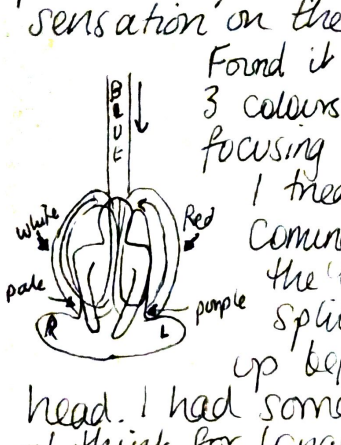 sensation on the
Found it
3 colours
focusing
I tried
the
up
head. I had some
I think for
BLUE
White
Red
pale
purple
R
L